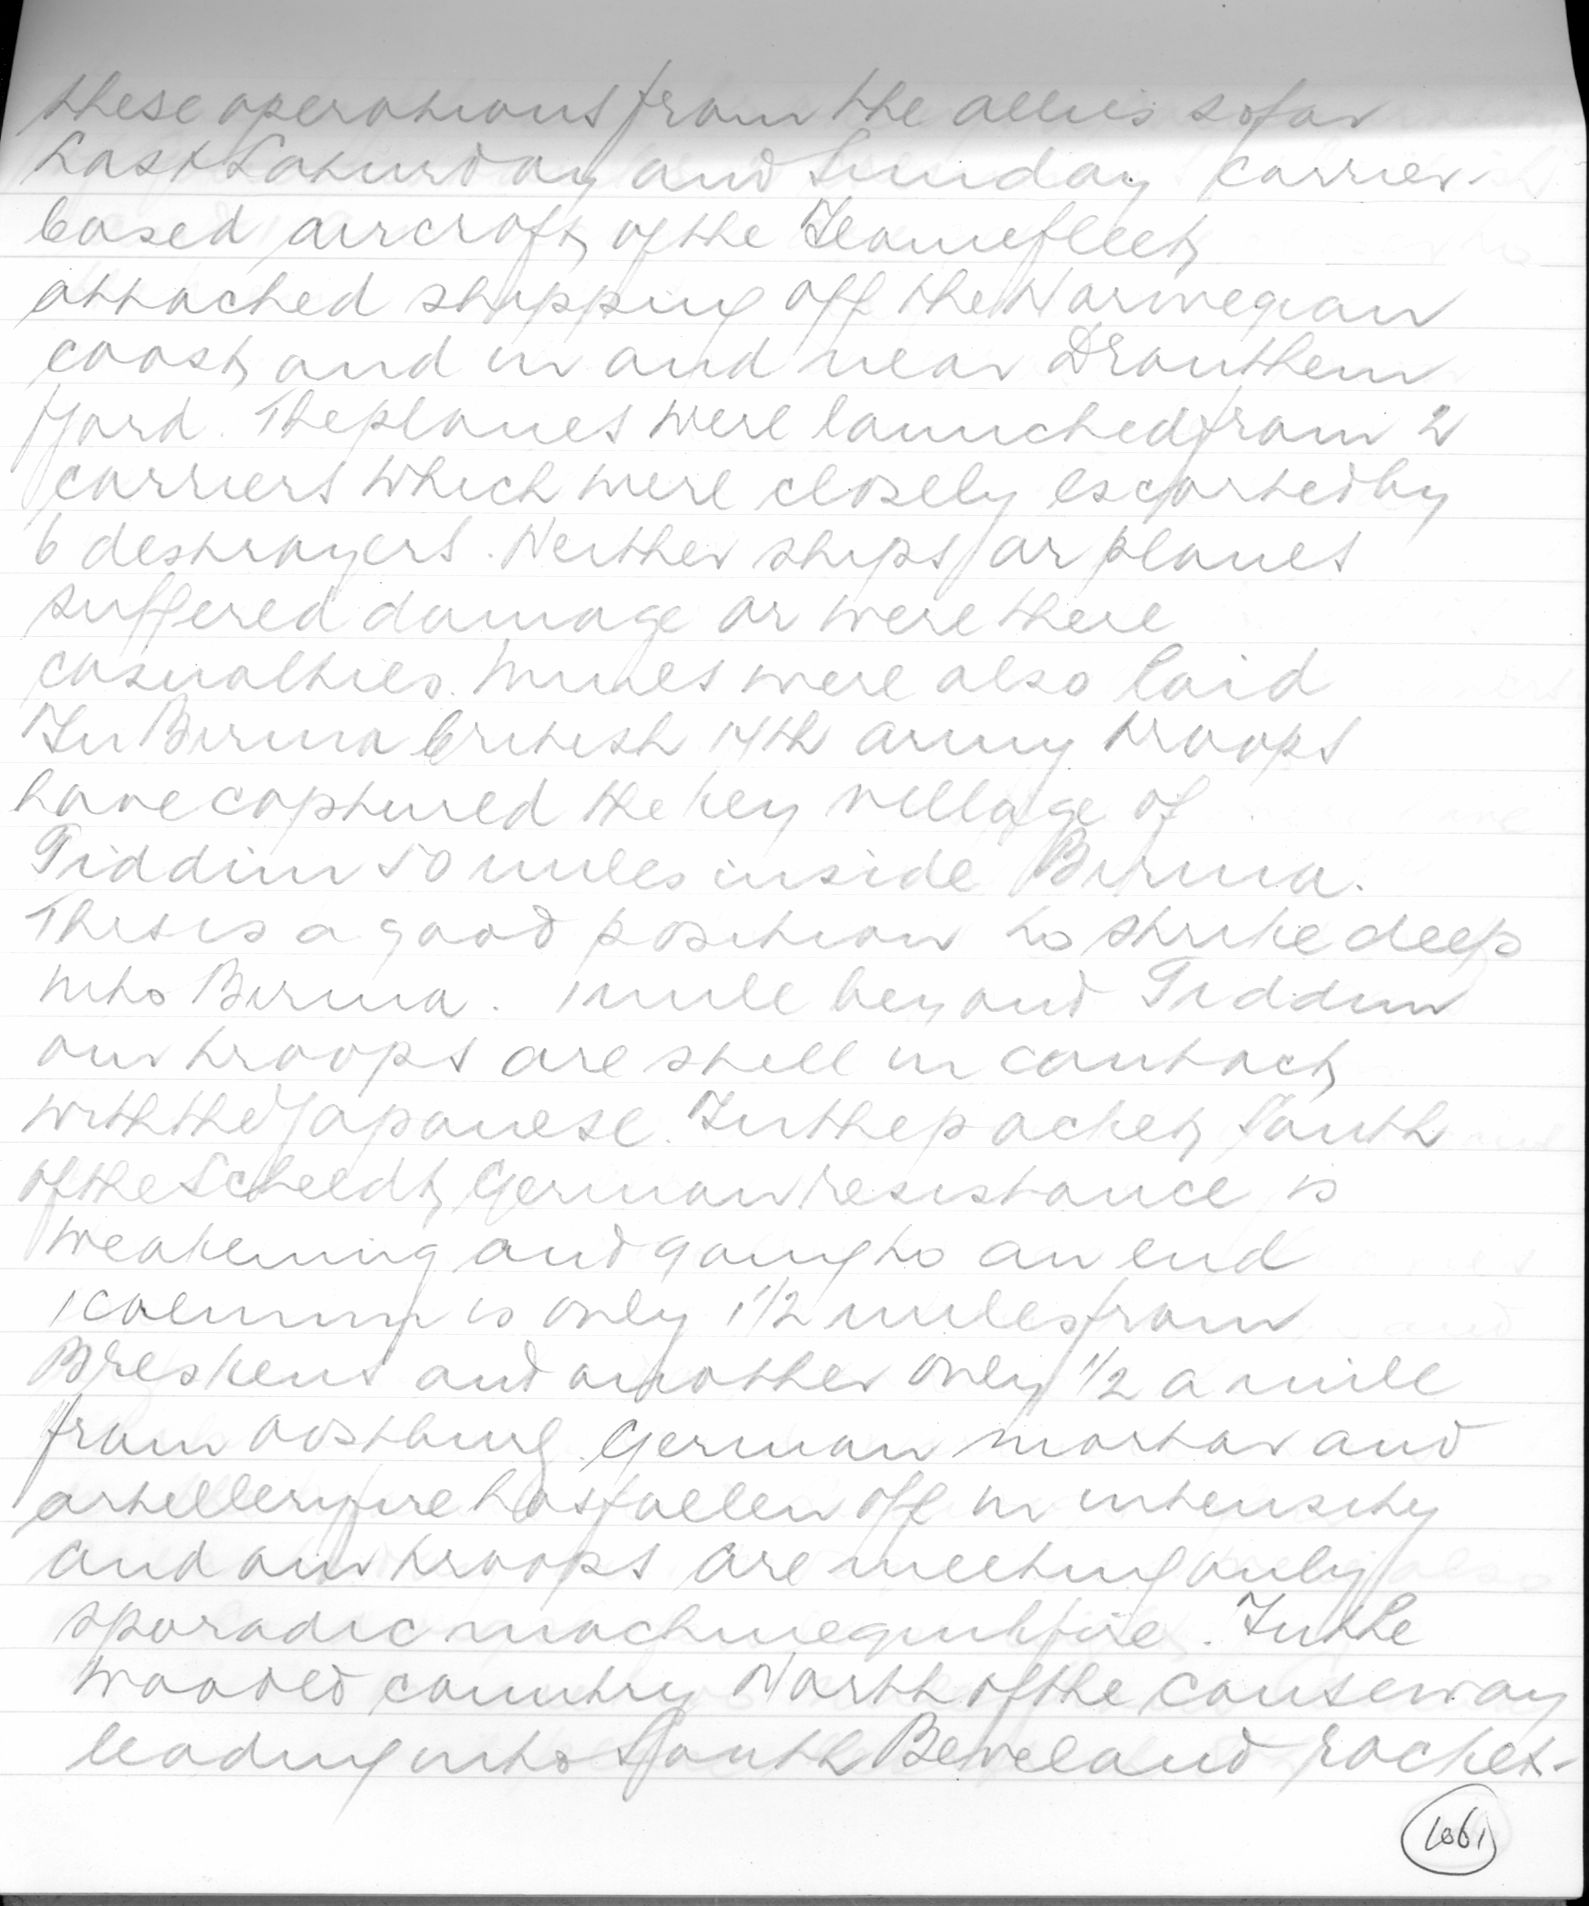 these operations from the allies sofar
Last Saturday and Sunday carrier-
based aircraft of the Homefleet
attached shipping off the Norwegian
coast and in and near Dronthem
fjord. The planes were launched from 2
carriers which were closely escorted by
6 destroyers. Neither ships or planes
suffered damage or were there
casualties. Mines were also laid
In Birma british 14th army troops
have captured the key village of
Tiddim 50 miles inside Birma.
This is a good position to strike deep
into Birma. 1 mile beyond Tiddim
our troops are still in contact
with the Japanese. In the pocket South
of the Scheldt German resistance is
weakening and going to an end
1 column is only 1 1/2 miles from
Breskens and another only 1/2 a mile
from Oostburg. German mortar and
artillery fire has fallen off in intensity
and our troops are meeting only
sporadic machinegunfire. In the
wooded country North of the causeway
leading into South Beveland rocket-
1061